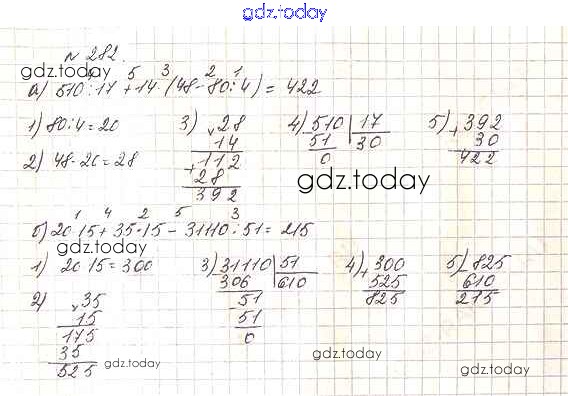 gdz.today
№ 282
gdz.today
4 5 3 2 1
а) 510:17+14·(48-80:4)=422
1) 80:4=20
2) 48-20=28
3) × 28
14
+ 112
28
392
4) 510 | 17
51 | 30
0
5) + 392
30
422
gdz.today
1 4 2 5 3
б) 20·15+35·15-31110:51=215
gdz.today
1) 20·15=300
2) × 35
15
175
35
525
3) 31110 | 51
306 | 610
51
51
0
4) + 300
525
825
5) - 825
610
215
gdz.today
gdz.today